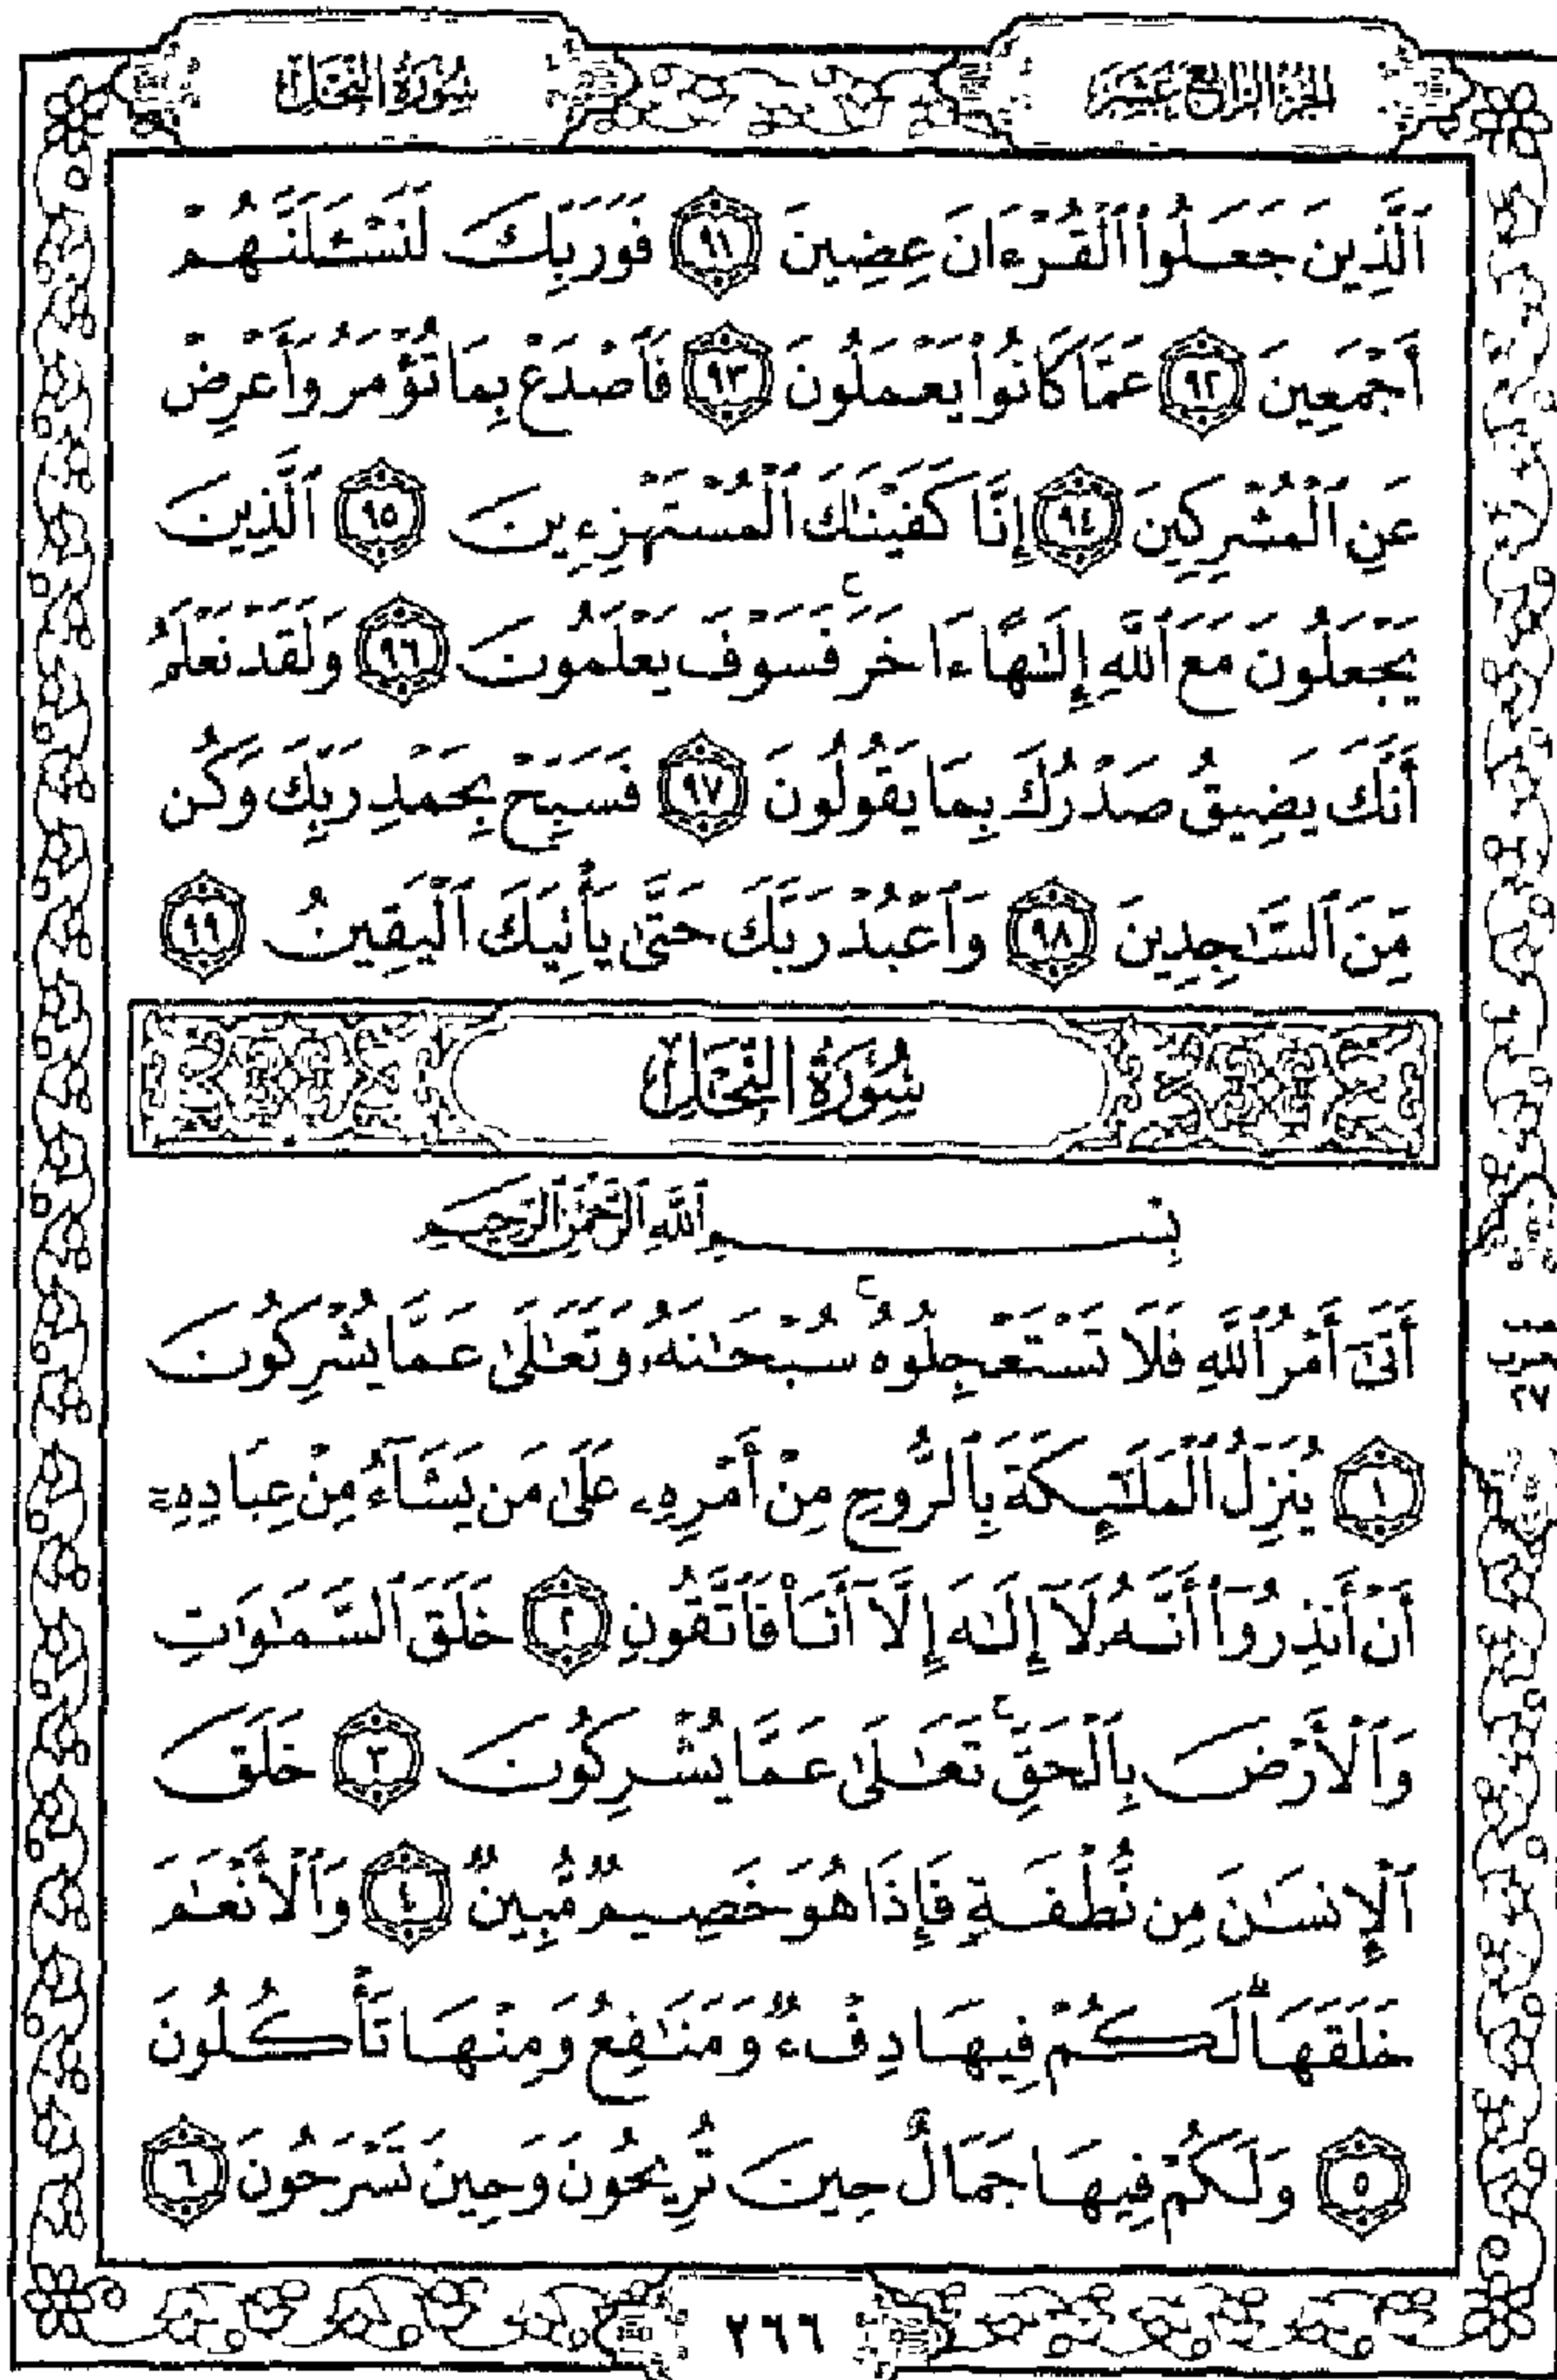 الجزء الرابع عشر
سورة النحل
ٱلَّذِينَ جَعَلُوا۟ ٱلْقُرْءَانَ عِضِينَ ٩١ فَوَرَبِّكَ لَنَسْـَٔلَنَّهُمْ
أَجْمَعِينَ ٩٢ عَمَّا كَانُوا۟ يَعْمَلُونَ ٩٣ فَٱصْدَعْ بِمَا تُؤْمَرُ وَأَعْرِضْ
عَنِ ٱلْمُشْرِكِينَ ٩٤ إِنَّا كَفَيْنَـٰكَ ٱلْمُسْتَهْزِءِينَ ٩٥ ٱلَّذِينَ
يَجْعَلُونَ مَعَ ٱللَّهِ إِلَـٰهًا ءَاخَرَ ۚ فَسَوْفَ يَعْلَمُونَ ٩٦ وَلَقَدْ نَعْلَمُ
أَنَّكَ يَضِيقُ صَدْرُكَ بِمَا يَقُولُونَ ٩٧ فَسَبِّحْ بِحَمْدِ رَبِّكَ وَكُن
مِّنَ ٱلسَّـٰجِدِينَ ٩٨ وَٱعْبُدْ رَبَّكَ حَتَّىٰ يَأْتِيَكَ ٱلْيَقِينُ ٩٩
سُورَةُ النَّحْلِ
بِسْمِ ٱللَّهِ ٱلرَّحْمَـٰنِ ٱلرَّحِيمِ
أَتَىٰٓ أَمْرُ ٱللَّهِ فَلَا تَسْتَعْجِلُوهُ ۚ سُبْحَـٰنَهُۥ وَتَعَـٰلَىٰ عَمَّا يُشْرِكُونَ
١ يُنَزِّلُ ٱلْمَلَـٰٓئِكَةَ بِٱلرُّوحِ مِنْ أَمْرِهِۦ عَلَىٰ مَن يَشَآءُ مِنْ عِبَادِهِۦٓ
أَنْ أَنذِرُوٓا۟ أَنَّهُۥ لَآ إِلَـٰهَ إِلَّآ أَنَا۠ فَٱتَّقُونِ ٢ خَلَقَ ٱلسَّمَـٰوَٰتِ
وَٱلْأَرْضَ بِٱلْحَقِّ ۚ تَعَـٰلَىٰ عَمَّا يُشْرِكُونَ ٣ خَلَقَ
ٱلْإِنسَـٰنَ مِن نُّطْفَةٍ فَإِذَا هُوَ خَصِيمٌ مُّبِينٌ ٤ وَٱلْأَنْعَـٰمَ
خَلَقَهَا ۗ لَكُمْ فِيهَا دِفْءٌ وَمَنَـٰفِعُ وَمِنْهَا تَأْكُلُونَ
٥ وَلَكُمْ فِيهَا جَمَالٌ حِينَ تُرِيحُونَ وَحِينَ تَسْرَحُونَ ٦
٢٦٦